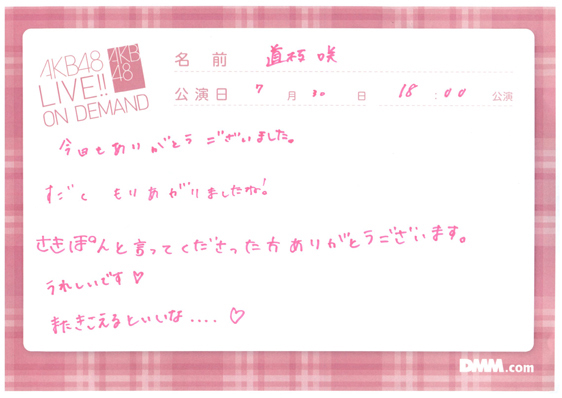 AKB48
LIVE!!
ON DEMAND
AKB
48
名前 道枝咲
公演日 7月30日 18:00 公演
今日もありがとうございました。
すごく もりあがりましたね!
さきぽんと言ってくださった方ありがとうございます。
うれしいです♡
またきこえるといいな....♡
DMM.com